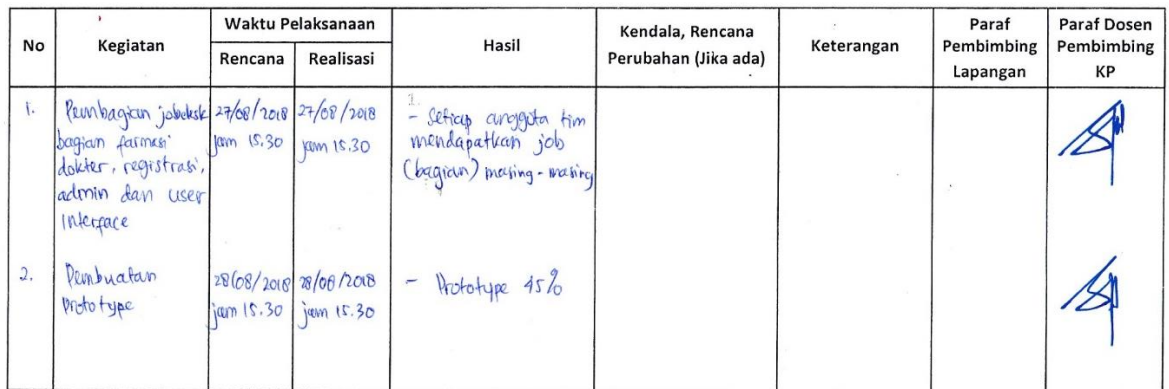 No
Kegiatan
Waktu Pelaksanaan
Rencana
Realisasi
Hasil
Kendala, Rencana
Perubahan (Jika ada)
Keterangan
Paraf
Pembimbing
Lapangan
Paraf Dosen
Pembimbing
KP
1.
Pembagian jobdesk
bagian farmasi
dokter, registrasi,
admin dan user
interface
27/08/2018
jam 15.30
27/08/2018
jam 15.30
- Setiap anggota tim
mendapatkan job
(bagian) masing-masing
2.
Pembuatan
Prototype
28/08/2018
jam 15.30
28/08/2018
jam 15.30
- Prototype 45%